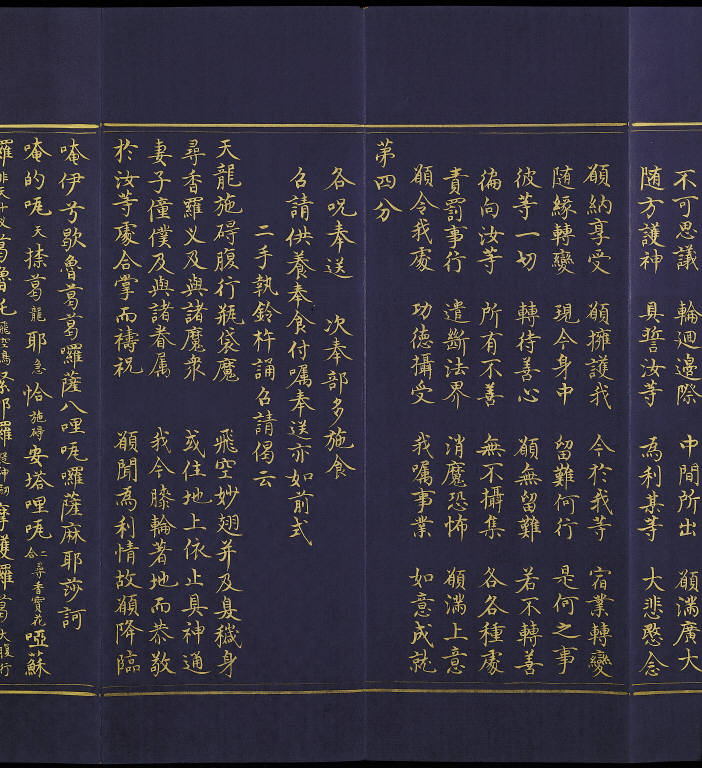 不可思議 輪迴邊際 中間所出 願滿廣大
随方護神 具誓汝等 為利某等 大悲愍念
願納享受 願擁護我 今於我等 宿業轉變
随緣轉變 現今身中 留難何行 是何之事
彼等一切 轉待善心 願無留難 若不轉善
徧向汝等 所有不善 無不攝集 各各種處
責罰事行 遣斷法界 消魔恐怖 願滿上意
願令我處 功德攝受 我嘱事業 如意成就
第四分
各呪奉送 次奉部多施食
召請供養奉食付嘱奉送亦如前式
二手執鈴杵誦召請偈云
天龍施碍腹行瓶袋魔 飛空妙翅并及臭穢身
尋香羅义及與諸魔衆 或住地上依止具神通
妻子僮僕及與諸眷属 我今膝輪著地而恭敬
於汝等處合掌而禱祝 願聞為利情故願降臨
唵伊兮歇魯葛葛囉薩八哩吪囉薩麻耶莎訶
唵的吪天捺葛龍耶急恰施碍安塔哩吪二合尋香賣花啞蘇
羅非天十义葛魯𠮟飛空鳥緊那羅疑神摩護羅葛大腹行